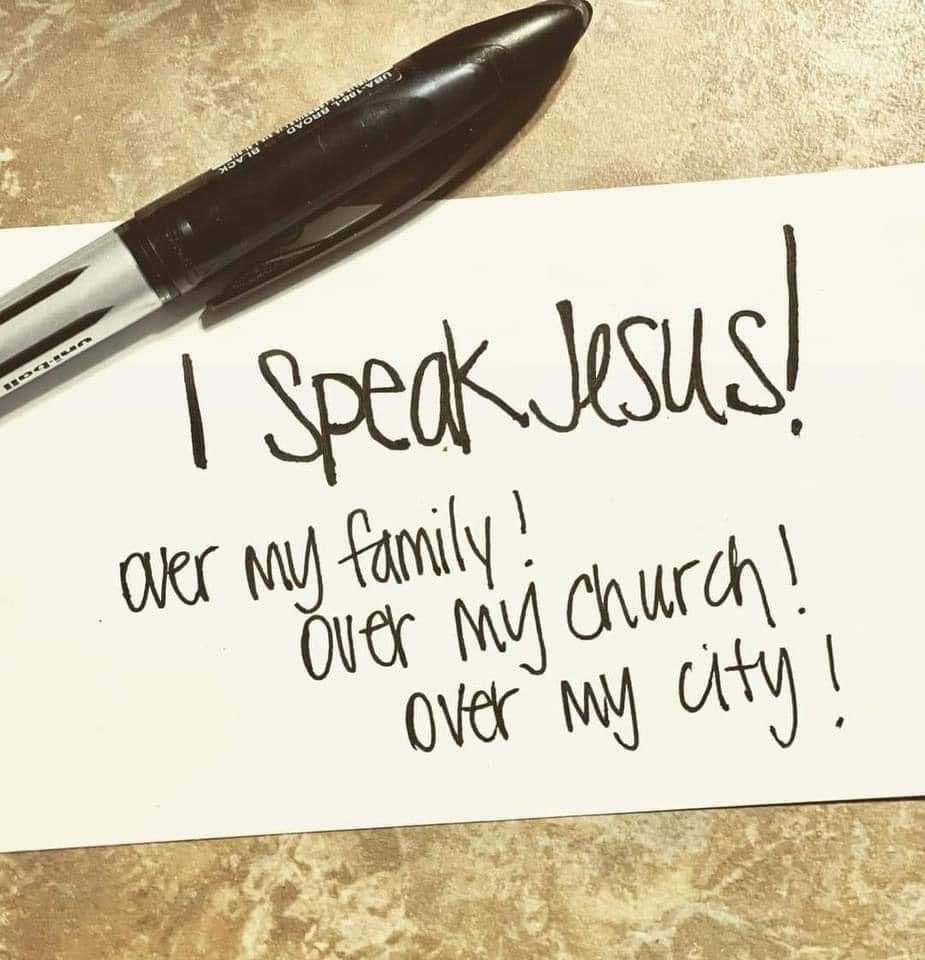 UBA-188-L BROAD
BLACK
uni-ball
I Speak Jesus!
over my family!
over my church!
over my city!